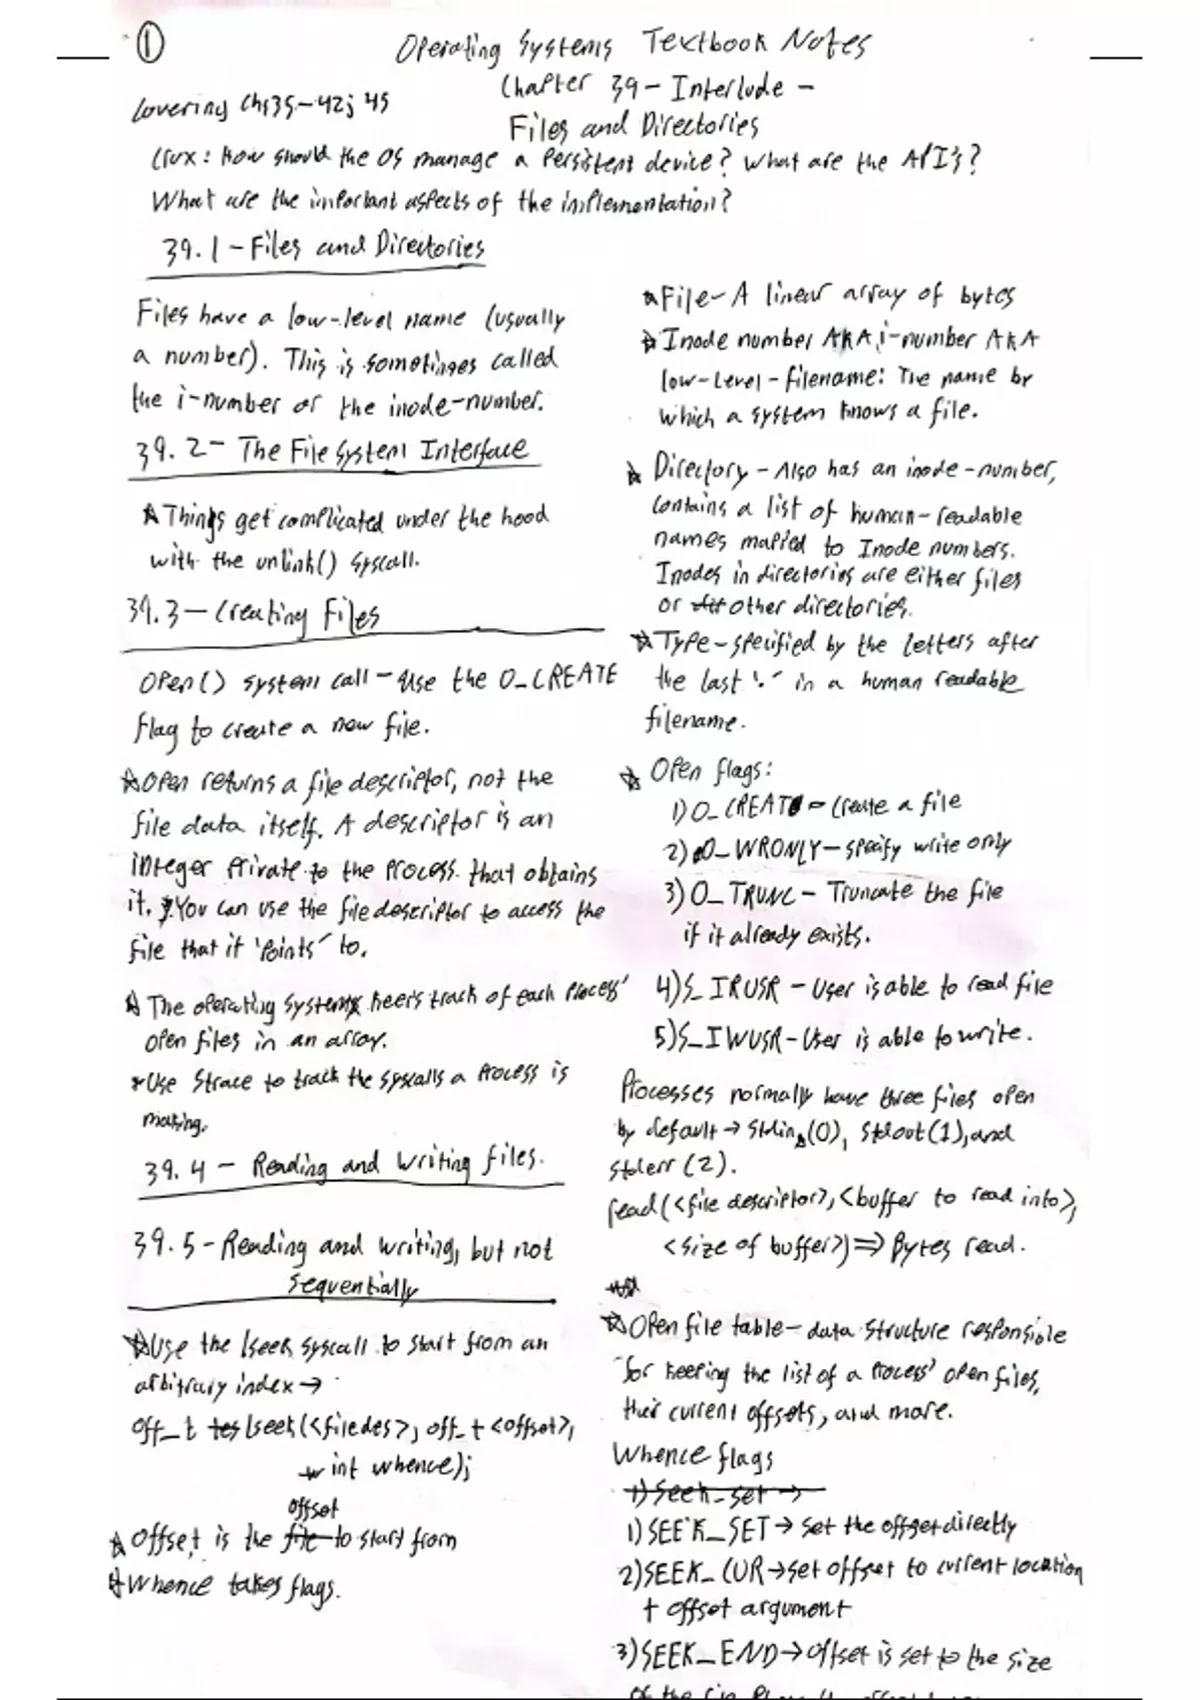 ①
Operating Systems Textbook Notes
Chapter 39 - Interlude -
Files and Directories
Covering Chs 35-42; 45
Crux: How should the OS manage a persistent device? What are the API's?
What are the important aspects of the implementation?
39.1 - Files and Directories
Files have a low-level name (usually
a number). This is sometimes called
the i-number or the inode-number.
39.2 - The File System Interface
☆ Things get complicated under the hood
with the unlink() syscall.
39.3 - Creating Files
Open() system call - Use the O_CREATE
flag to create a new file.
☆ Open returns a file descriptor, not the
file data itself. A descriptor is an
integer private to the process that obtains
it. You can use the file descriptor to access the
file that it 'points' to.
☆ The operating system keeps track of each process'
open files in an array.
* Use Strace to track the syscalls a process is
making.
39.4 - Reading and Writing files.
39.5 - Reading and writing, but not
sequentially
☆ Use the lseek syscall to start from an
arbitrary index →
off_t lseek(<filedes>, off_t <offset>,
int whence);
offset
☆ Offset is the file to start from
☆ Whence takes flags.
☆ File - A linear array of bytes
☆ Inode number AKA i-number AKA
low-level-filename: The name by
which a system knows a file.
☆ Directory - Also has an inode-number,
contains a list of human-readable
names mapped to Inode numbers.
Inodes in directories are either files
or other directories.
☆ Type - specified by the letters after
the last '.' in a human readable
filename.
☆ Open flags:
1) O_CREAT - Create a file
2) O_WRONLY - specify write only
3) O_TRUNC - Truncate the file
if it already exists.
4) S_IRUSR - User is able to read file
5) S_IWUSR - User is able to write.
Processes normally have three files open
by default → stdin (0), stdout (1), and
stderr (2).
read(<file descriptor>, <buffer to read into>,
<size of buffer>) ⇒ Bytes read.
☆ Open file table - data structure responsible
for keeping the list of a process' open files,
their current offsets, and more.
Whence flags
1) Seek_set →
1) SEEK_SET → set the offset directly
2) SEEK_CUR → set offset to current location
+ offset argument
3) SEEK_END → offset is set to the size
of the